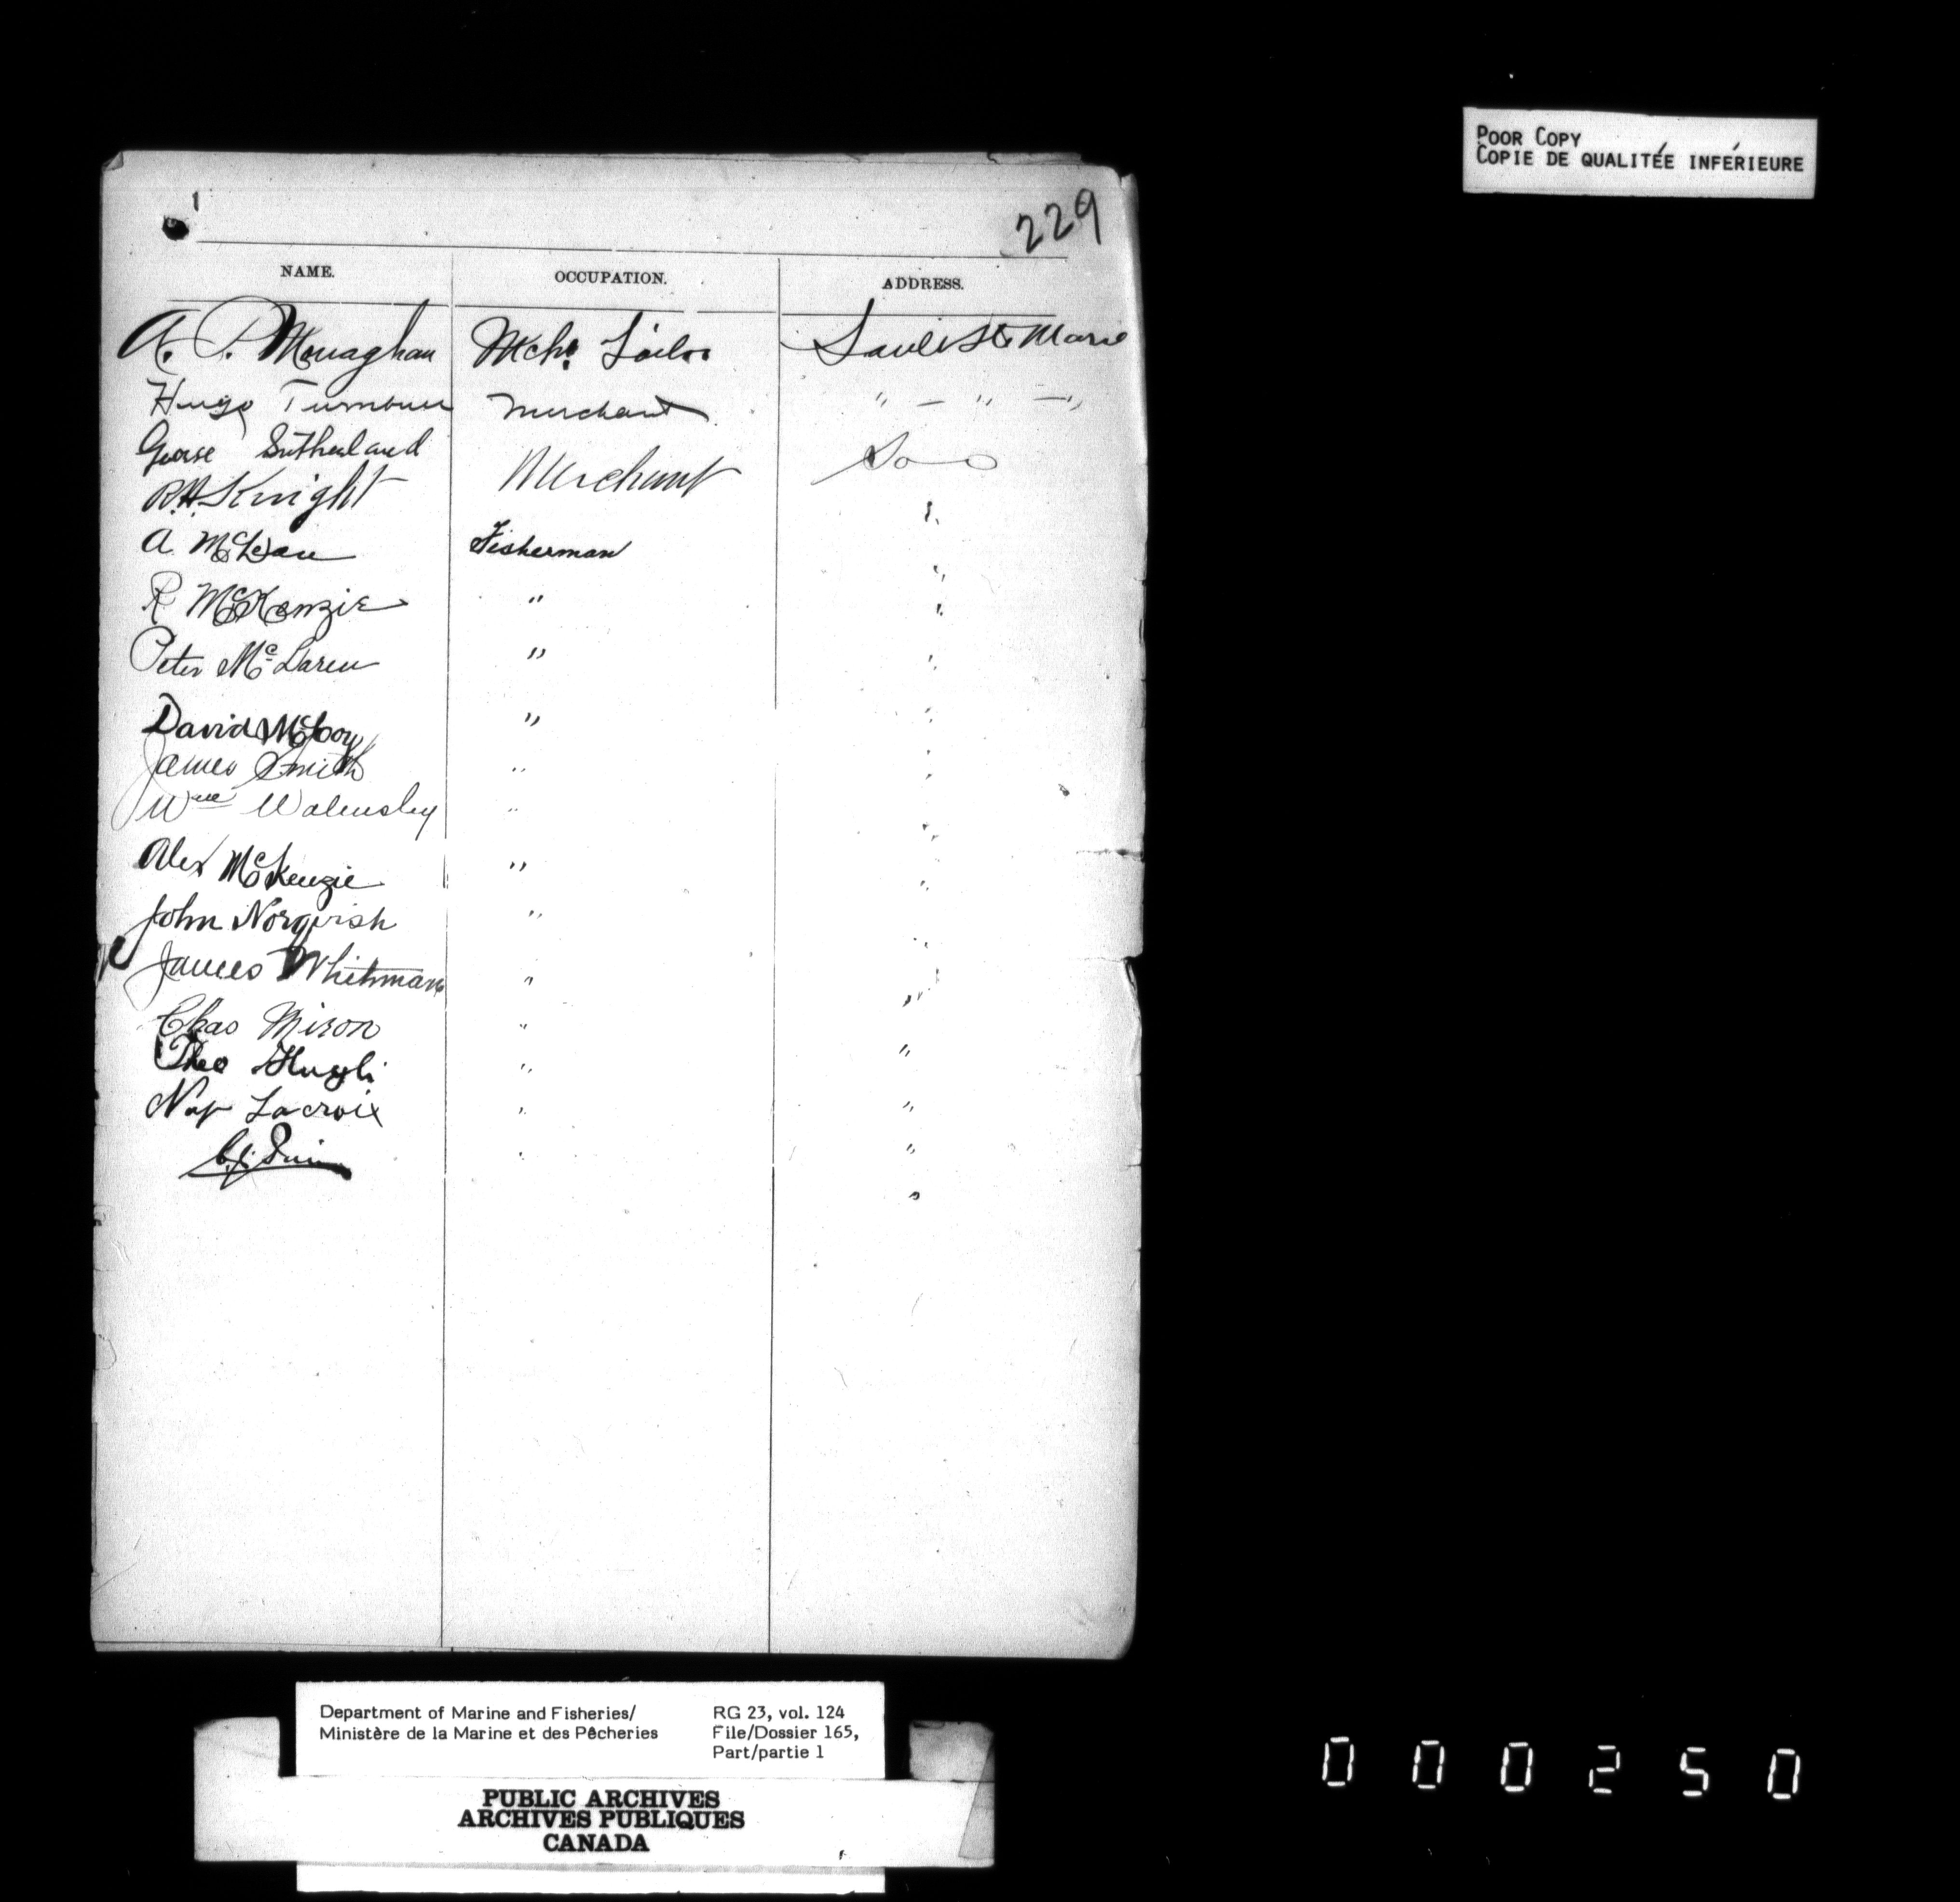 POOR COPY
COPIE DE QUALITÉE INFÉRIEURE
1
229
NAME. OCCUPATION. ADDRESS.
A. P. Monaghan Mcht Tailor Sault Ste Marie
Hugo Turnbull Merchant " — " — "
George Sutherland
R.H. Knight Merchant Do
A McLean Fisherman "
R McKenzie " "
Peter McLaren " "
David McCoy " "
James Smith " "
Wm Walmsley " "
Alex McKenzie " "
John Norqvish " "
James Whitman " "
Chas Miron " "
Theo Hugli " "
Nap Lacroix " "
" "
Department of Marine and Fisheries/ RG 23, vol. 124
Ministère de la Marine et des Pêcheries File/Dossier 165,
Part/partie 1
PUBLIC ARCHIVES
ARCHIVES PUBLIQUES
CANADA
000250